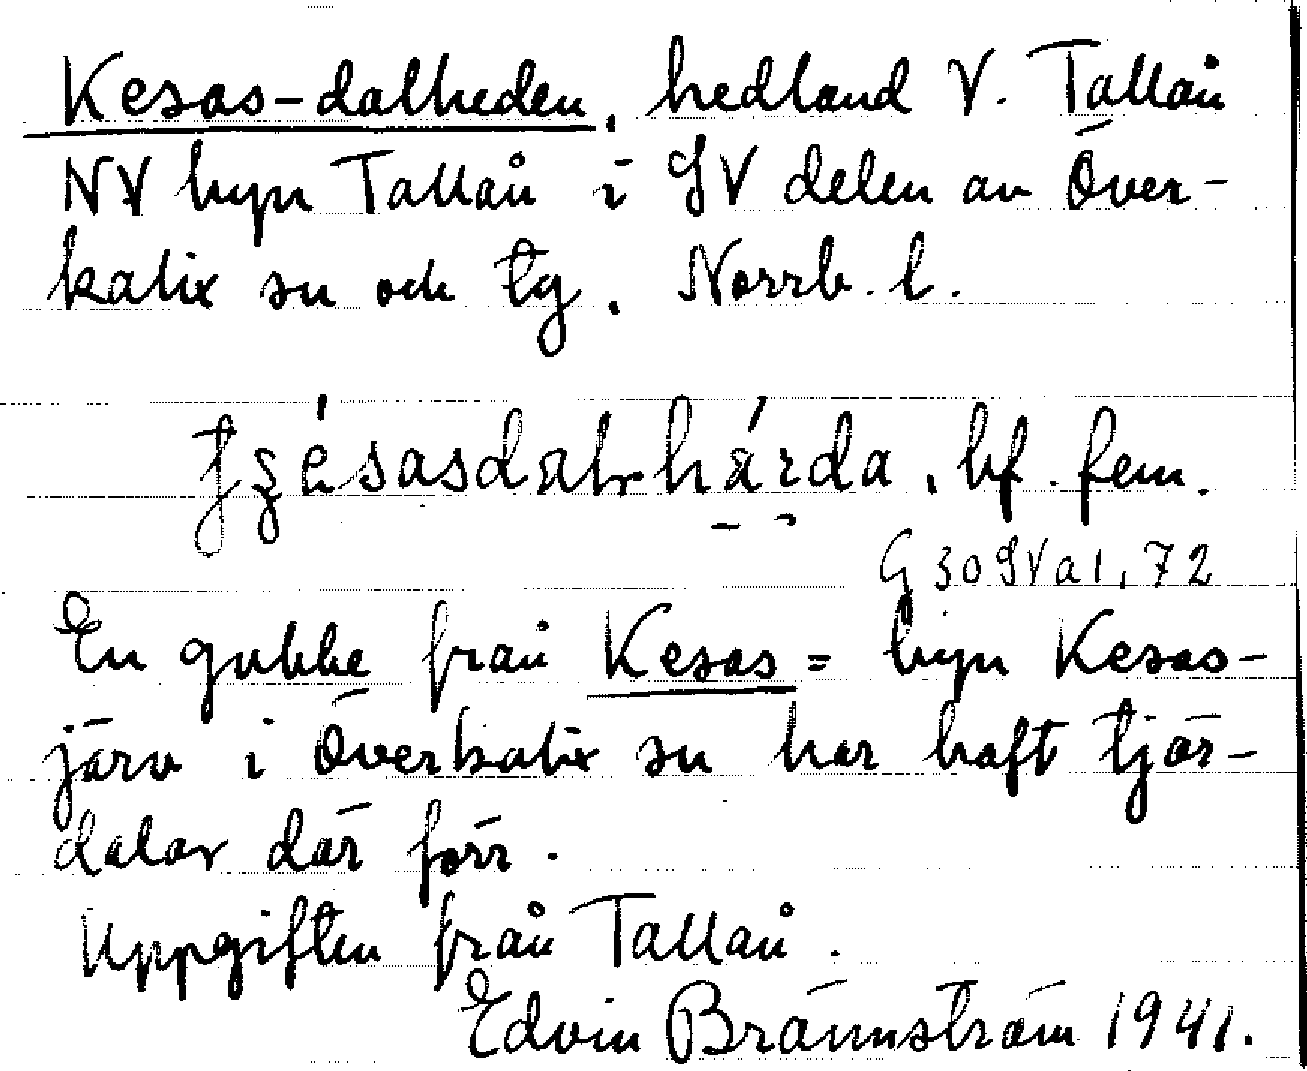 Kesas-dalheden, hedland V. Tallån
NV byn Tallån i SV delen av Över-
kalix sn och tg, Norrb. l.
bf. fem.
G 30 SV a 1, 72
En gubbe från Kesas = byn Kesas-
järv i Överkalix sn har haft tjär-
dalar där förr.
Uppgiften från Tallån.
Edvin Brännström 1941.